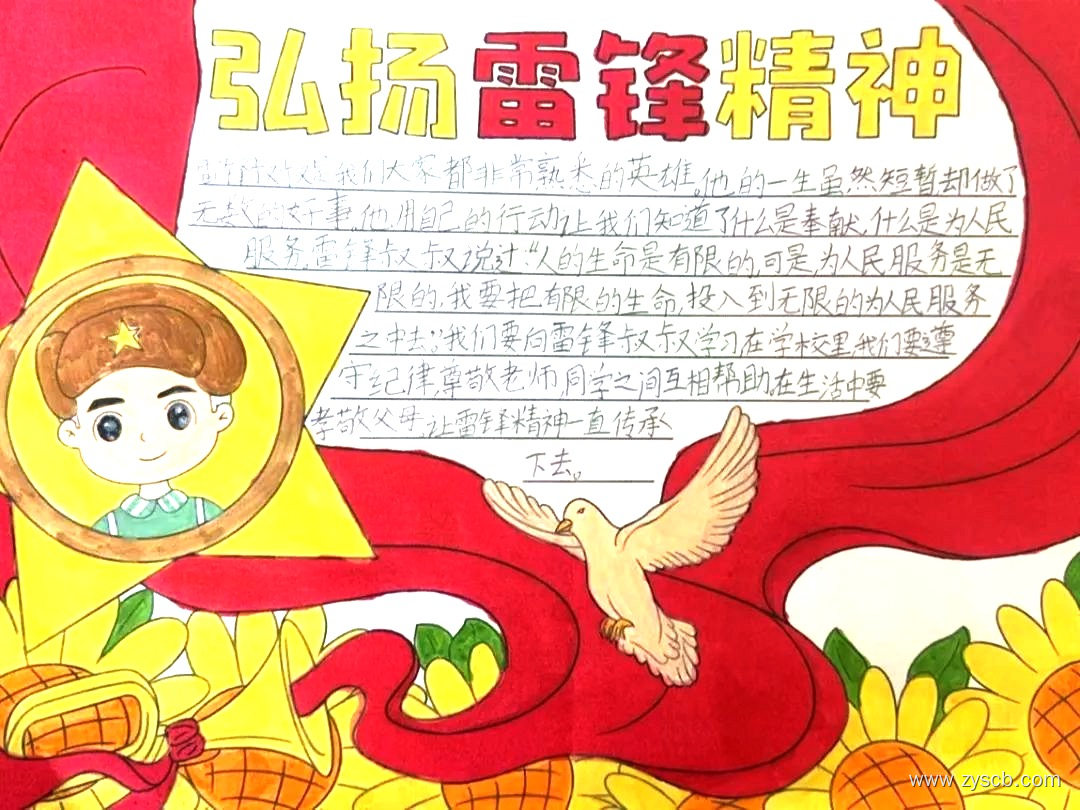 弘扬雷锋精神
雷锋叔叔是我们大家都非常熟悉的英雄。他的一生虽然短暂却做了
无数的好事,他用自己的行动让我们知道了什么是奉献,什么是为人民
服务,雷锋叔叔说过:“人的生命是有限的,可是,为人民服务是无
限的,我要把有限的生命,投入到无限的为人民服务
之中去”我们要向雷锋叔叔学习在学校里我们要遵
守纪律尊敬老师,同学之间互相帮助,在生活中要
孝敬父母,让雷锋精神一直传承
下去。
www.zyscb.com